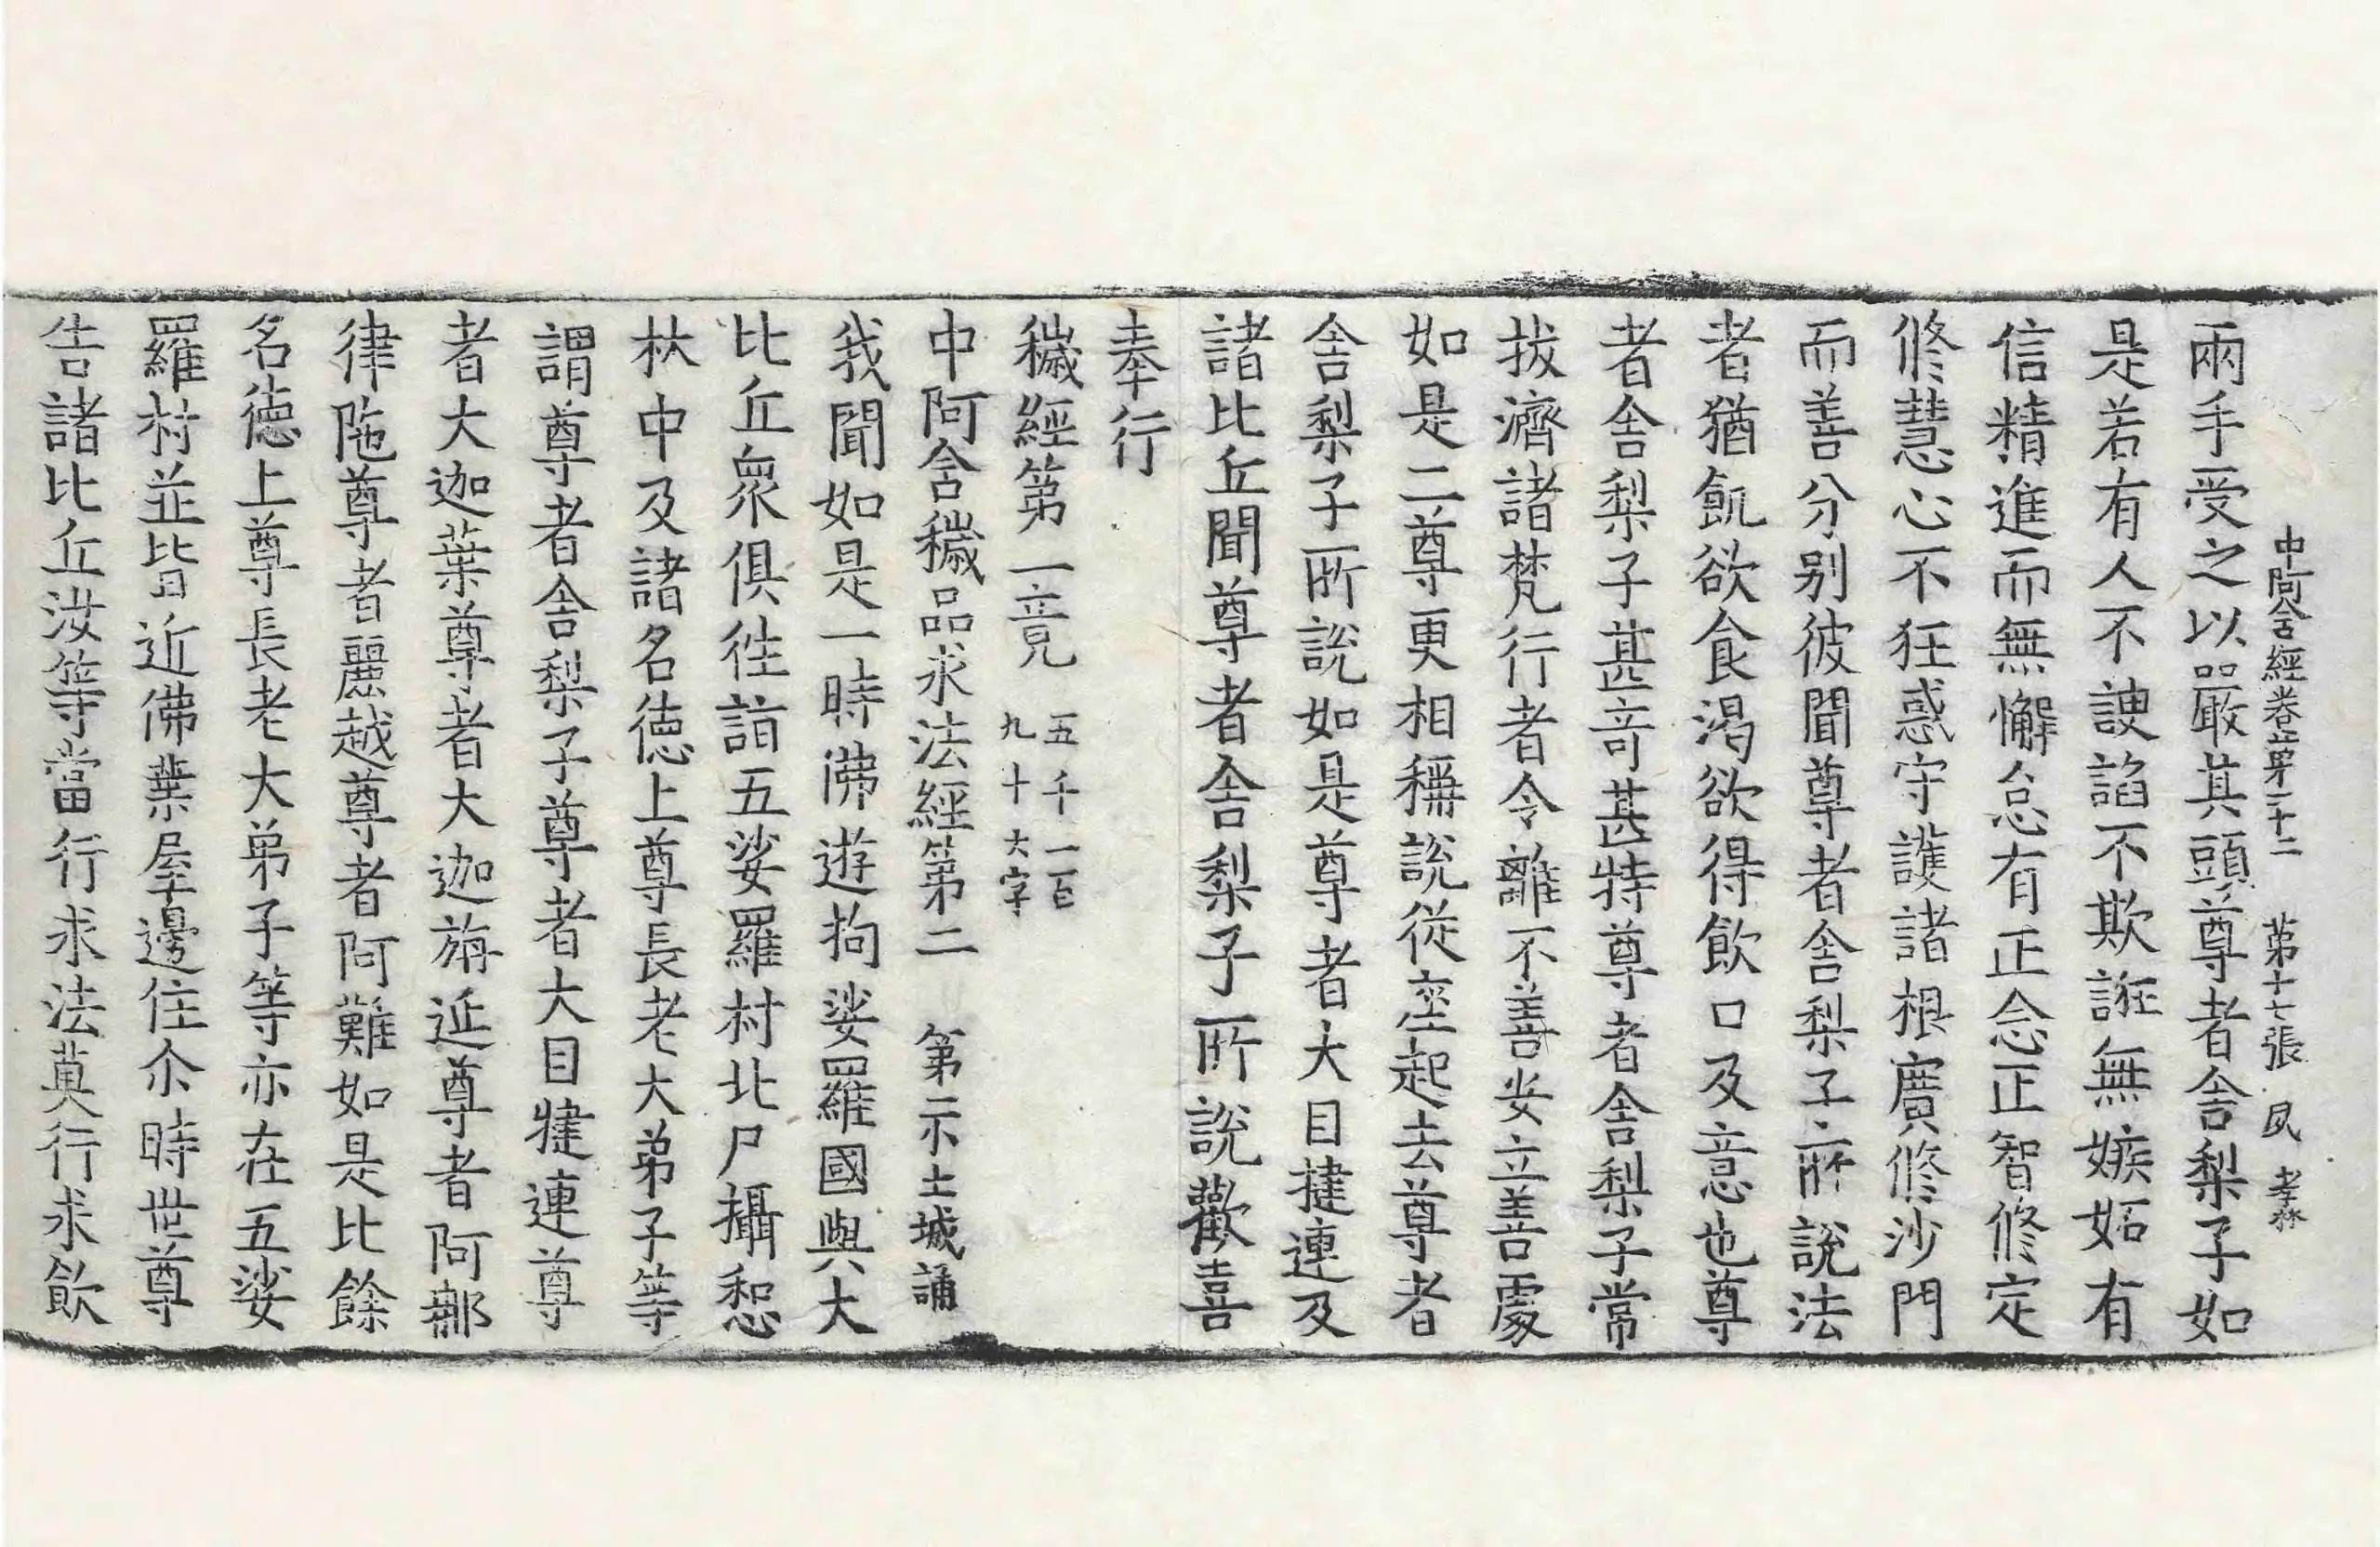 中阿含經卷第二十二 第十七張 夙 孝林
兩手受之以嚴其頭尊者舍梨子如
是若有人不諛諂不欺誑無嫉妬有
信精進而無懈怠有正念正智修定
修慧心不狂惑守護諸根廣修沙門
而善分別彼聞尊者舍梨子所說法
者猶飢欲食渴欲得飲口及意也尊
者舍梨子甚奇甚特尊者舍梨子常
拔濟諸梵行者令離不善安立善處
如是二尊更相稱說從座起去尊者
舍梨子所說如是尊者大目揵連及
諸比丘聞尊者舍梨子所說歡喜
奉行
穢經第一竟 五千一百九十六字
中阿含穢品求法經第二 第示土城誦
我聞如是一時佛遊拘娑羅國與大
比丘衆俱往詣五娑羅村北尸攝惒
林中及諸名德上尊長老大弟子等
謂尊者舍梨子尊者大目揵連尊
者大迦葉尊者大迦旃延尊者阿那
律陁尊者麗越尊者阿難如是比餘
名德上尊長老大弟子等亦在五娑
羅村並皆近佛葉屋邊住尒時世尊
告諸比丘汝等當行求法莫行求飲